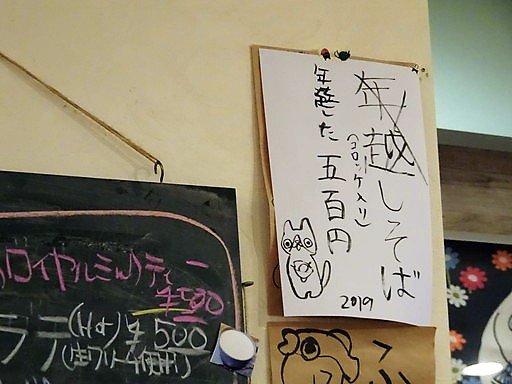 年越しそば
(コロッケ入り)
五百円
年越した
2019
ロイヤルミルクティー
¥580
ラテ(Hot)¥500
(生クリーム使用)
ふ